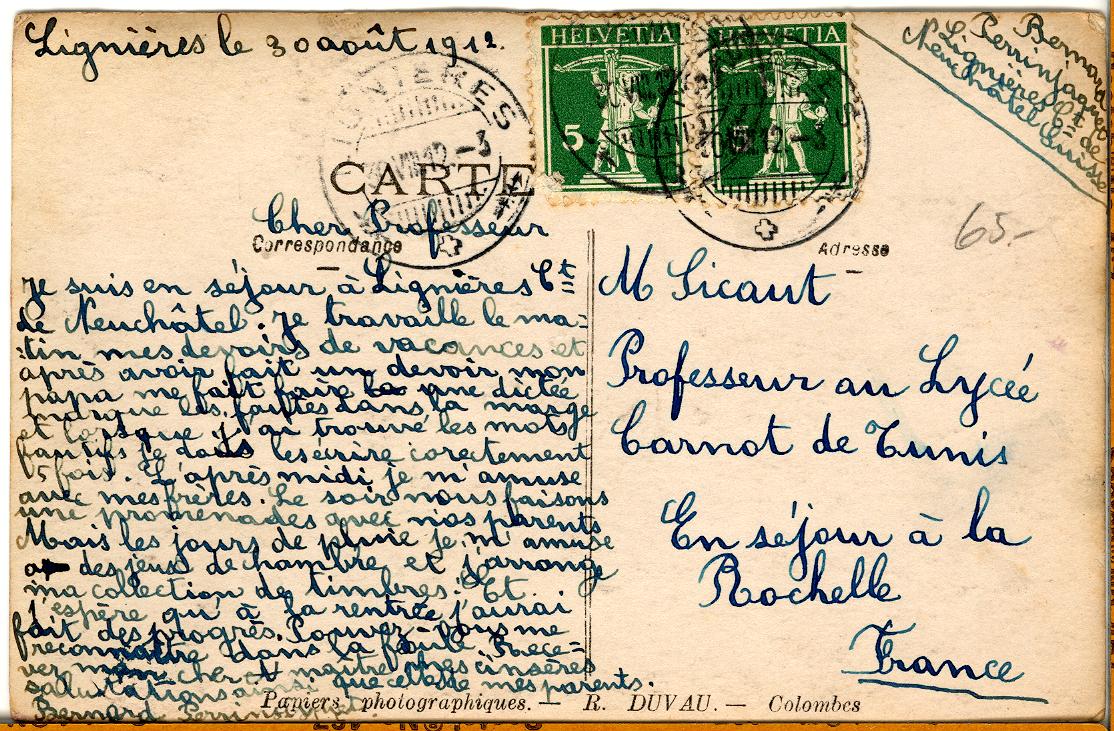 Lignières le 30 août 1912.
HELVETIA
HELVETIA
5
LIGNIERES
VIII.12-3
VIII 12-3
Bernard
Perrinjaquet
Lignières Ct de
Neuchâtel Suisse
CARTE
65.-
Cher Professeur
Correspondance
Adresse
Je suis en séjour à Lignières Ct
de Neuchâtel. Je travaille le ma=
tin mes devoirs de vacances et
après avoir fait un devoir mon
papa me fait faire une dictée
indique les fautes dans la marge
et lorsque j'ai trouvé les mots
fautifs je dois les écrire corectement
15 fois. L'après midi je m'amuse
avec mes frères. Le soir nous faisons
une promenades avec nos parents
Mais les jours de pluie je m'amuse
a des jeux de chambre et j'arrange
ma collection de timbres. Et
j'espère qu'à la rentrée j'aurai
fait des progrès. Pouvez-vous me
reconnaître dans la foule. Rece=
vez mon cher maître mes cinsères
salutations ainsi que celle de mes parents.
Bernard
M Sicaut
Professeur au Lycée
Carnot de Tunis
En séjour à la
Rochelle
France
Papiers photographiques. — R. DUVAU. — Colombes